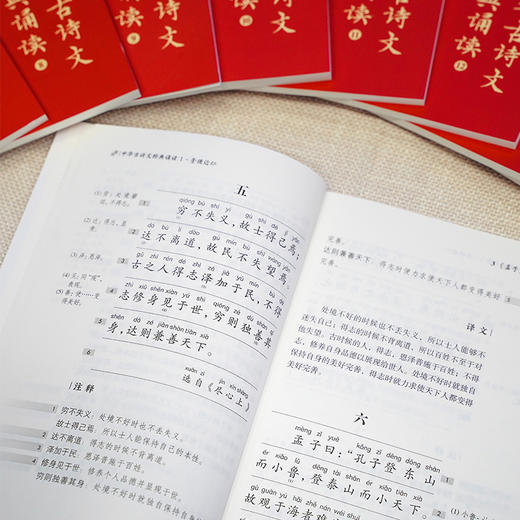 古诗文
诵读
8
古诗文
诵读
9
诵读
10
诵读
11
古诗文
诵读
12
中华古诗文经典诵读
五
qióng bù shī yì gù shì dé jǐ yān
穷不失义，故士得己焉；
dá bù lí dào gù mín bù shī wàng yān
达不离道，故民不失望焉。
古之人得志泽加于民，不得
志修身见于世，穷则独善其
shēn dá zé jiān shàn tiān xià
身，达则兼善天下。
xuǎn zì jìn xīn shàng
选自《尽心上》
注释
穷不失义：处境不好时也不丢失义。
故士得己焉：所以士人能保持自己的本性。
达不离道：得志的时候不背离道。
泽加于民：恩泽普施于百姓。
修身见于世：修养个人品德并显现于世。
穷则独善其身：处境不好时就独自保持自身
完善。
达则兼善天下：得志时便力求使天下人都变得美好
完善。
3《孟子
译文
处境不好的时候也不丢义，所以士人能够不
迷失自己；得志的时候不背离道，所以百姓不至于对
他失望。古时候的人，得志，恩泽普施于百姓；不得
志，修养自身品德以展现给世人。处境不好时就独自
保持自身的美好完善，得志时就力求使天下人都变得
美好完善。
六
mèng zǐ yuē kǒng zǐ dēng dōng shān
孟子曰：“孔子登东山
ér xiǎo lǔ dēng tài shān ér xiǎo tiān xià
而小鲁，登泰山而小天下。
gù guān yú hǎi zhě nán wéi shuǐ
故观于海者难